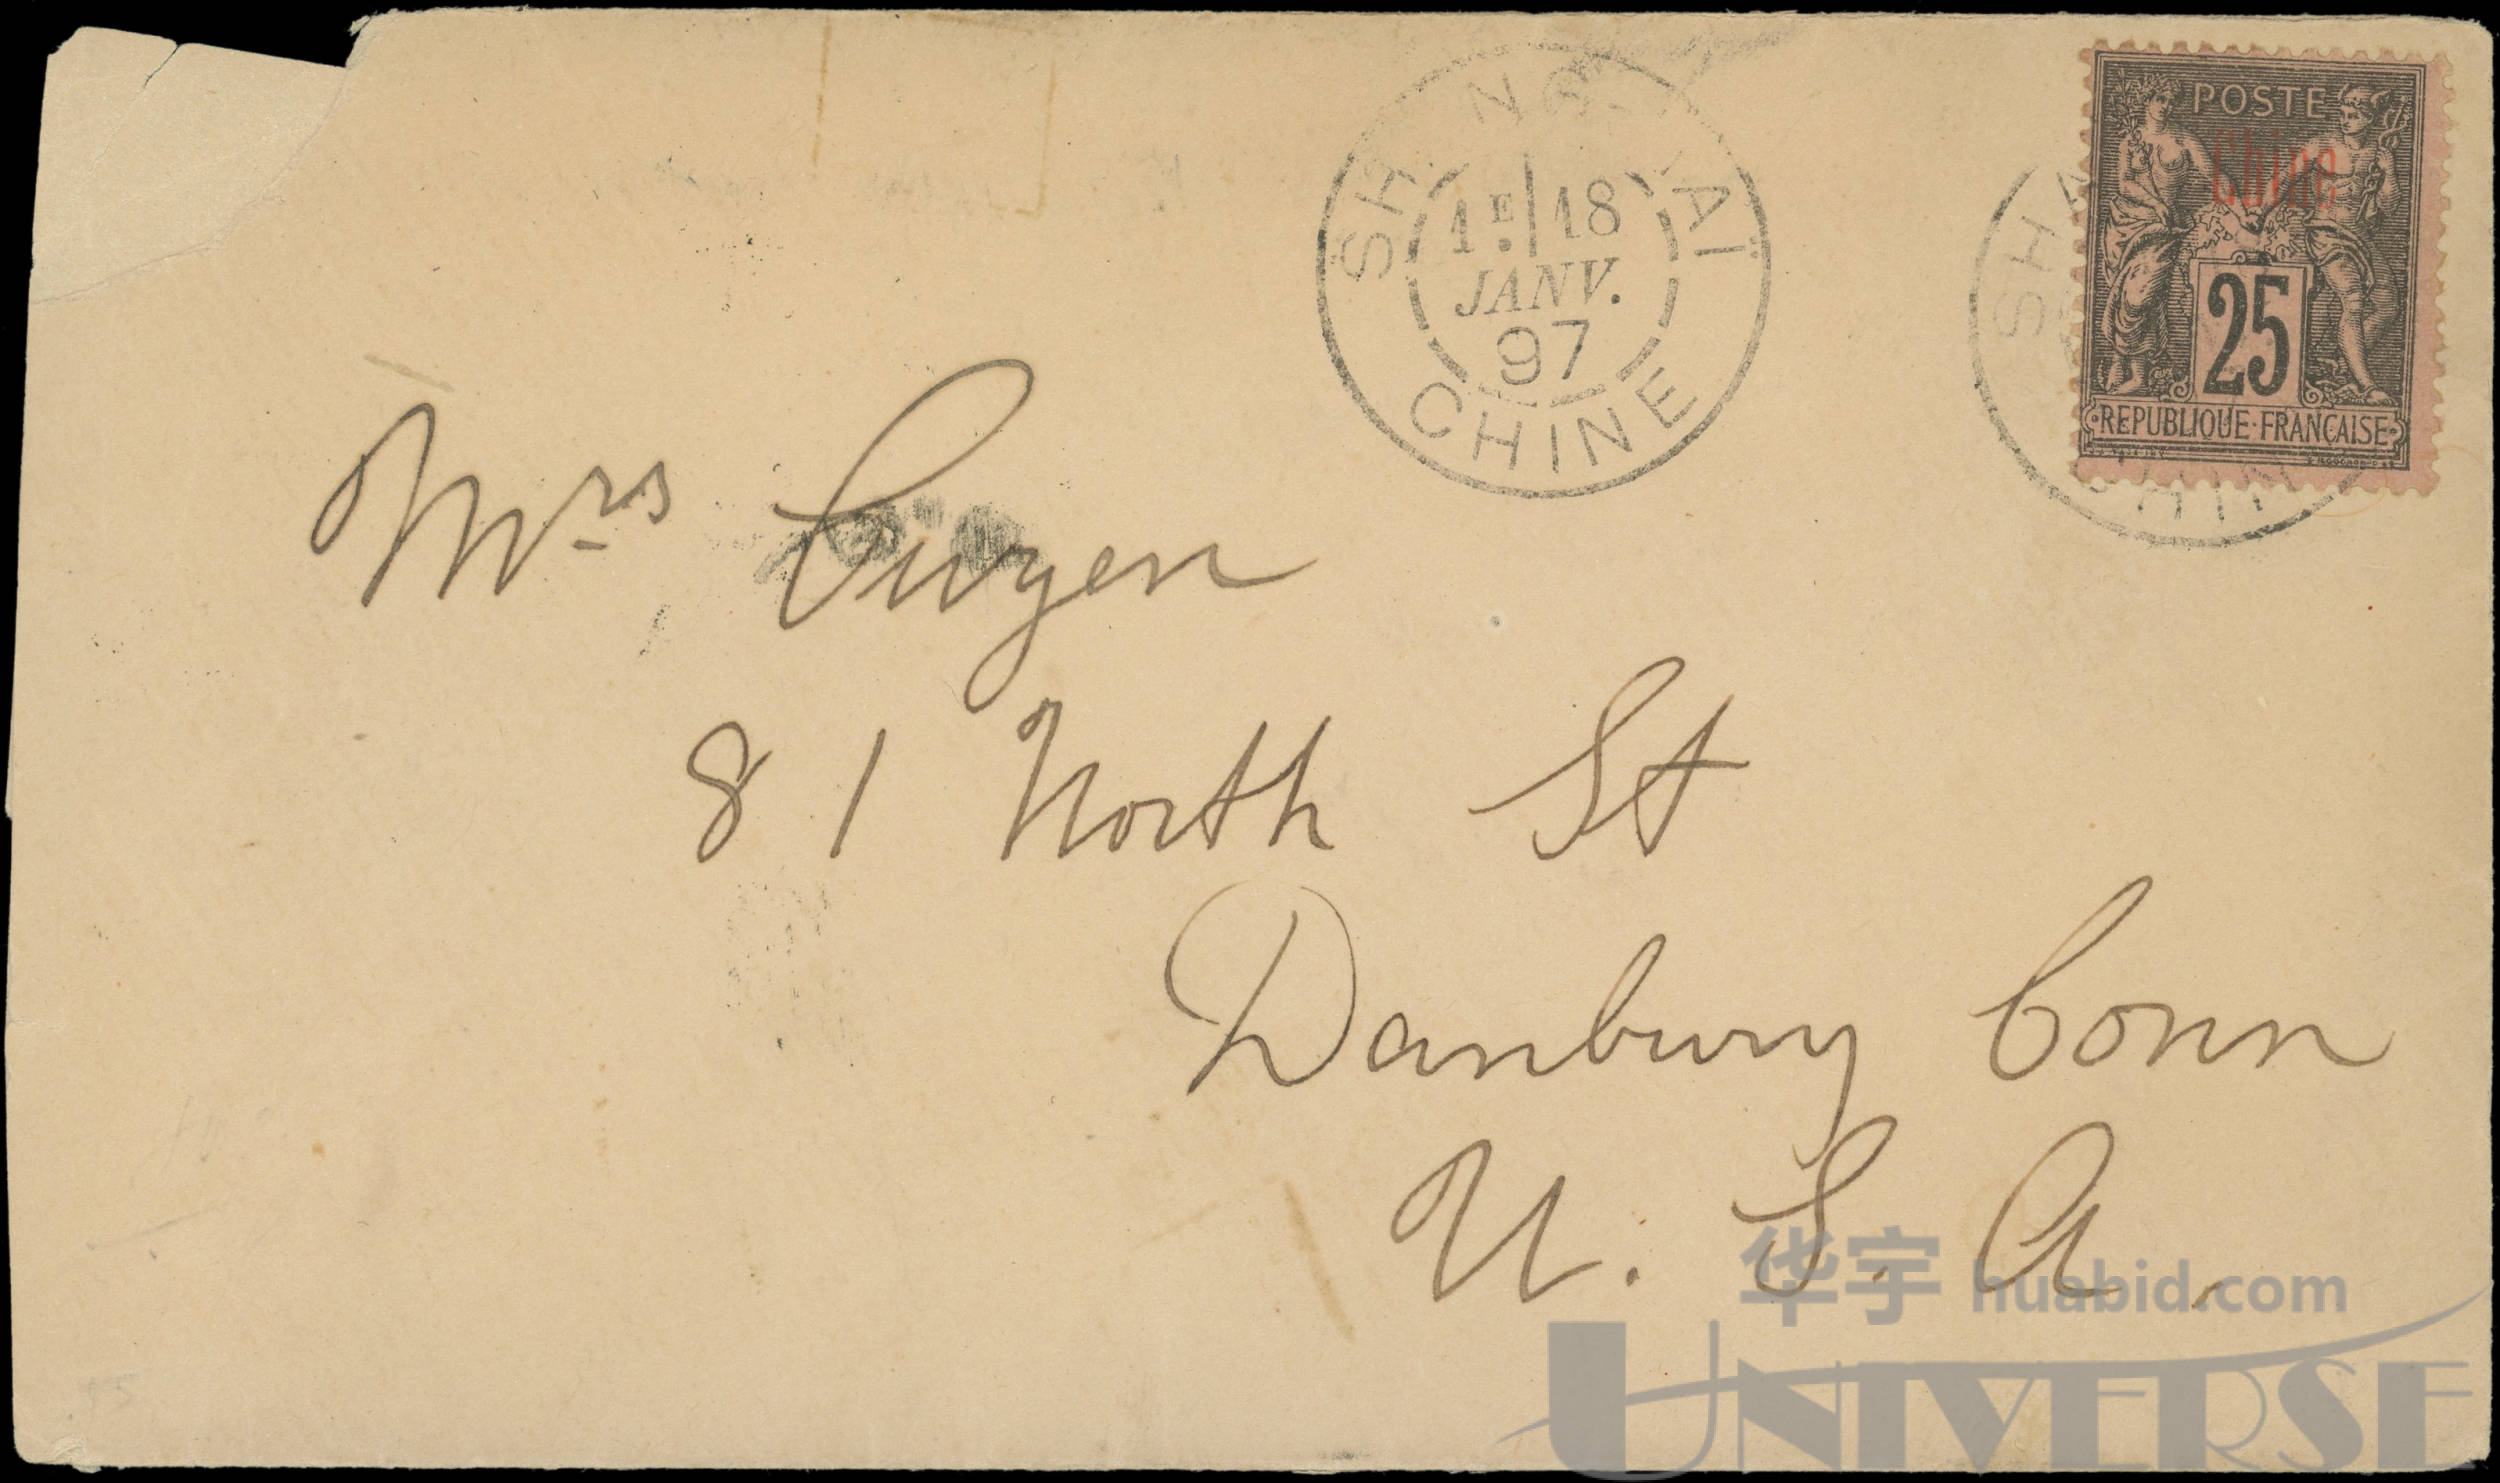 SHANG-HAÏ
1E. 18
JANV.
97
CHINE
POSTE
Chine
25
REPUBLIQUE·FRANCAISE
SHA
CHIN
Mrs
81 North St
Danbury Conn
U. S. A.
华宇 huabid.com
UNIVERSE